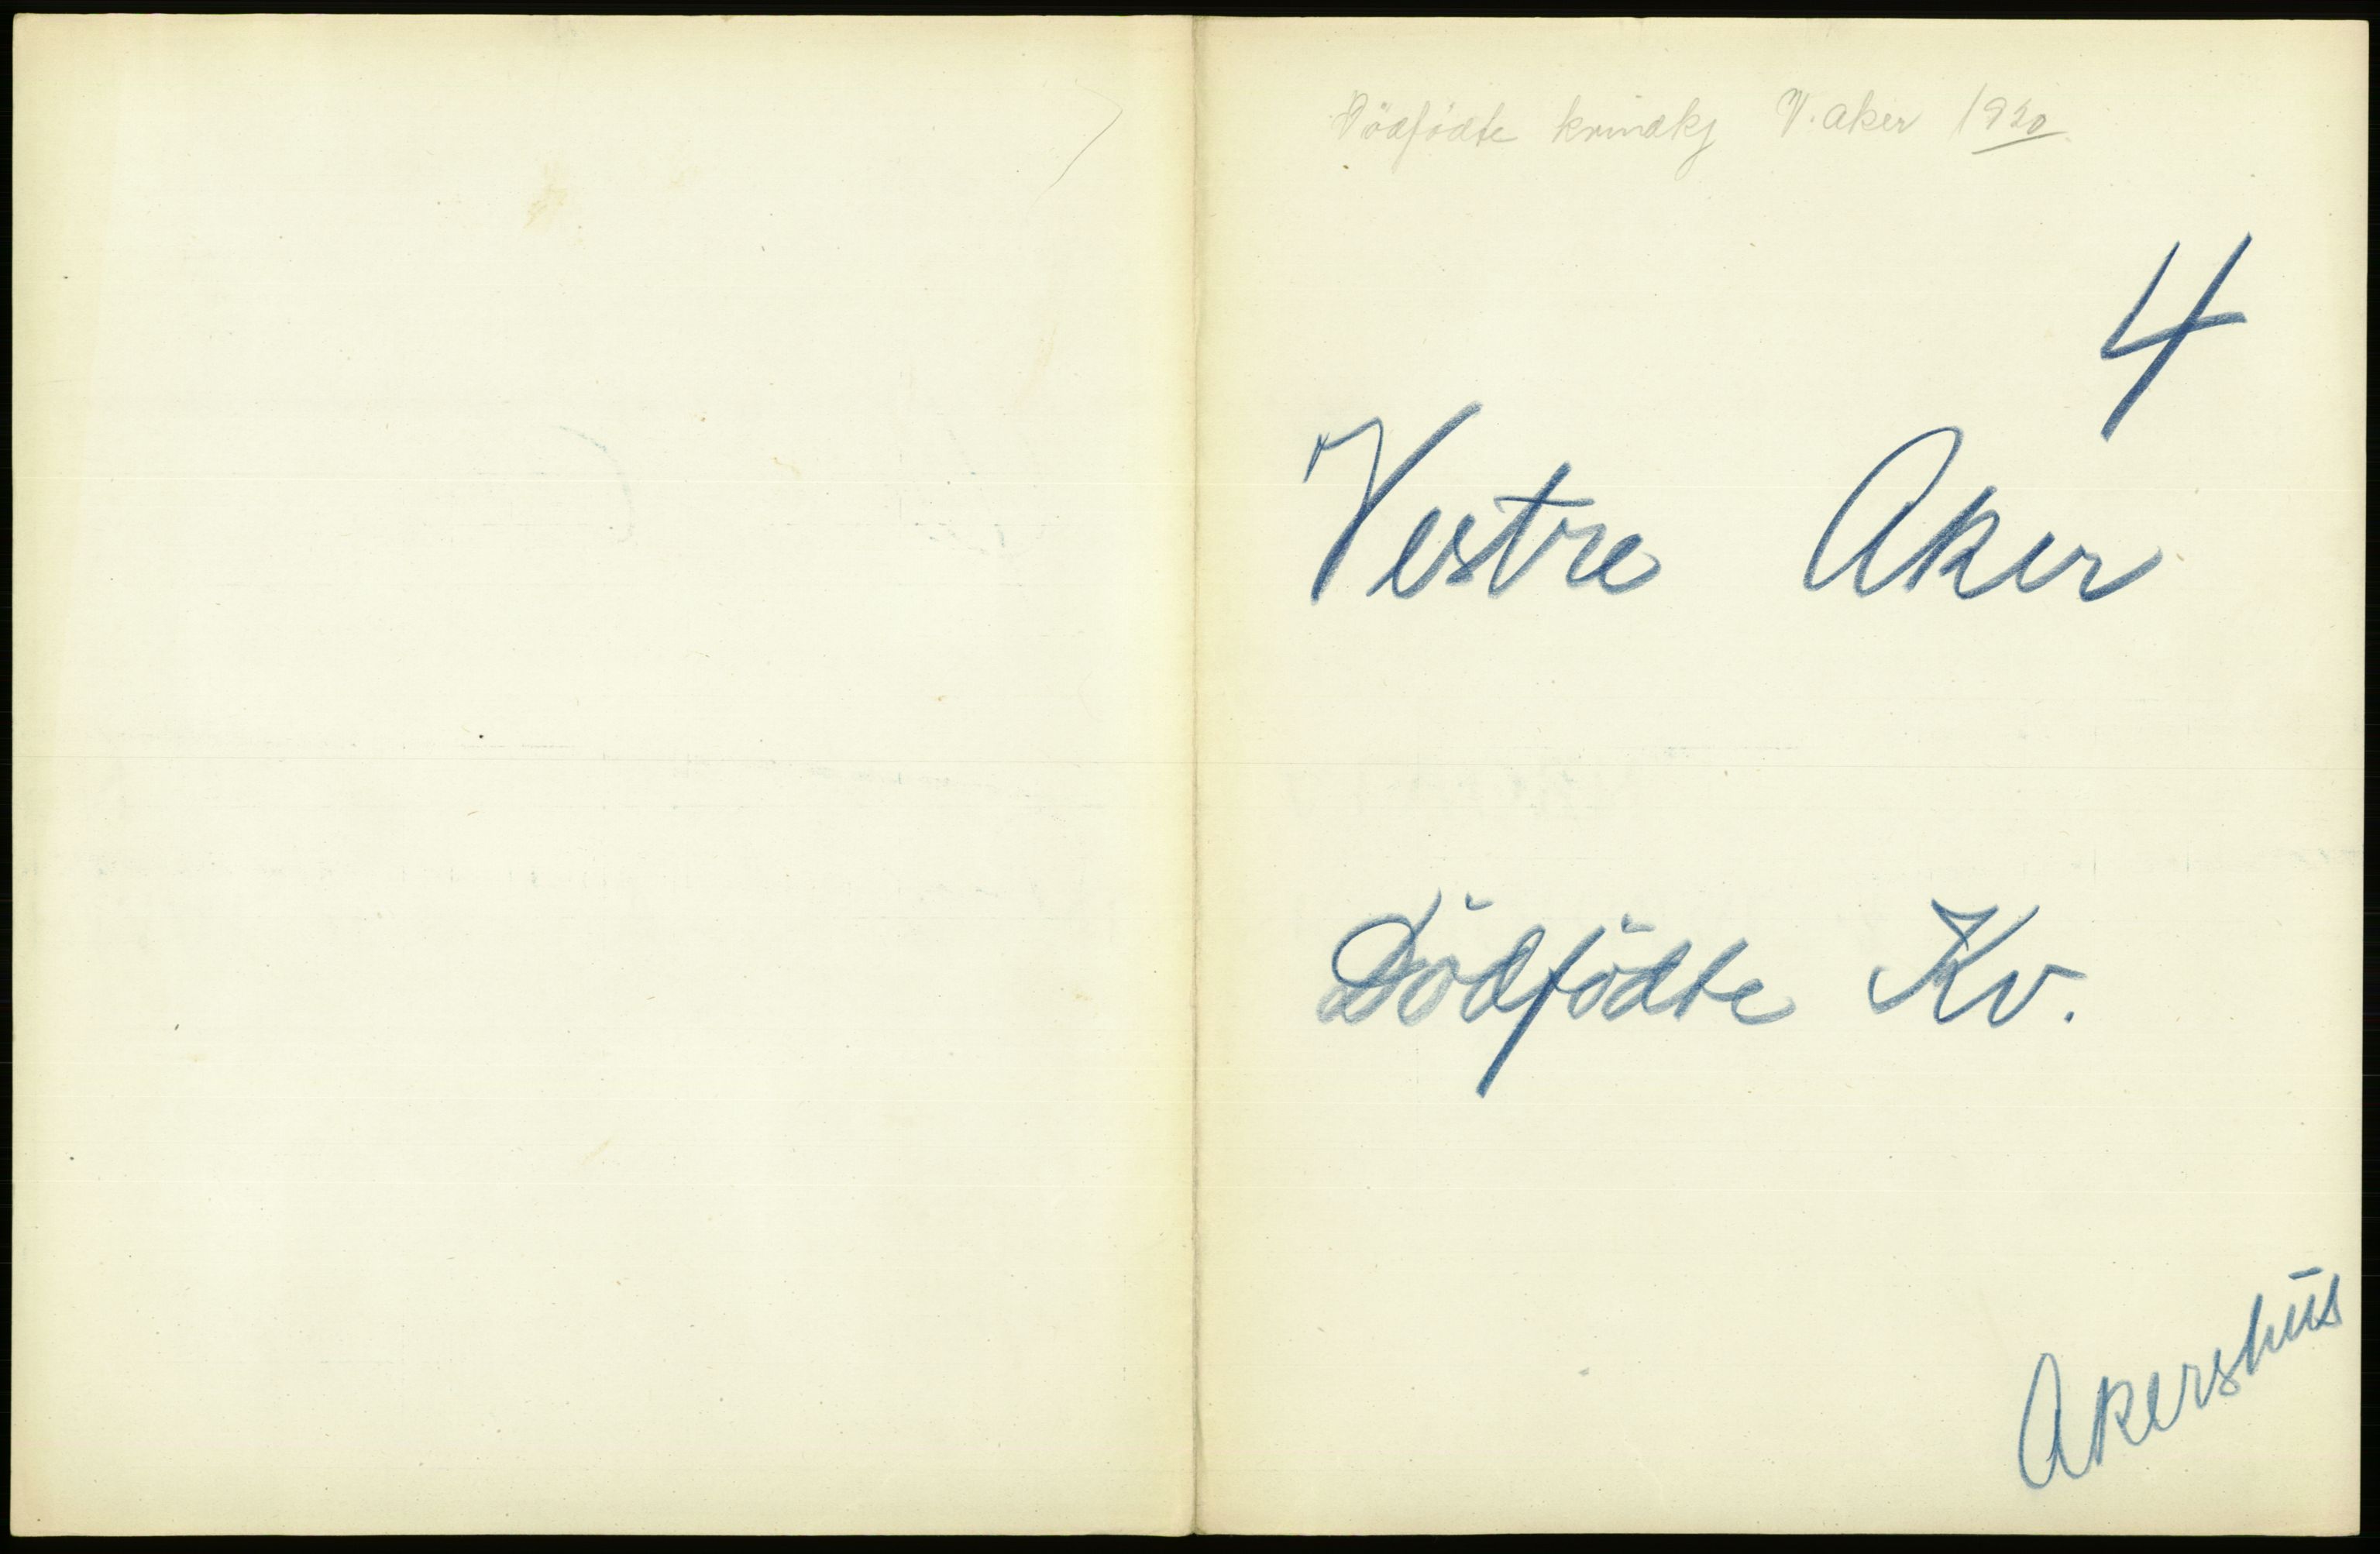 Dödfödte kvindkj V. Aker 1920
4
Vestre Aker
Dödfödte Kv.
Akershus